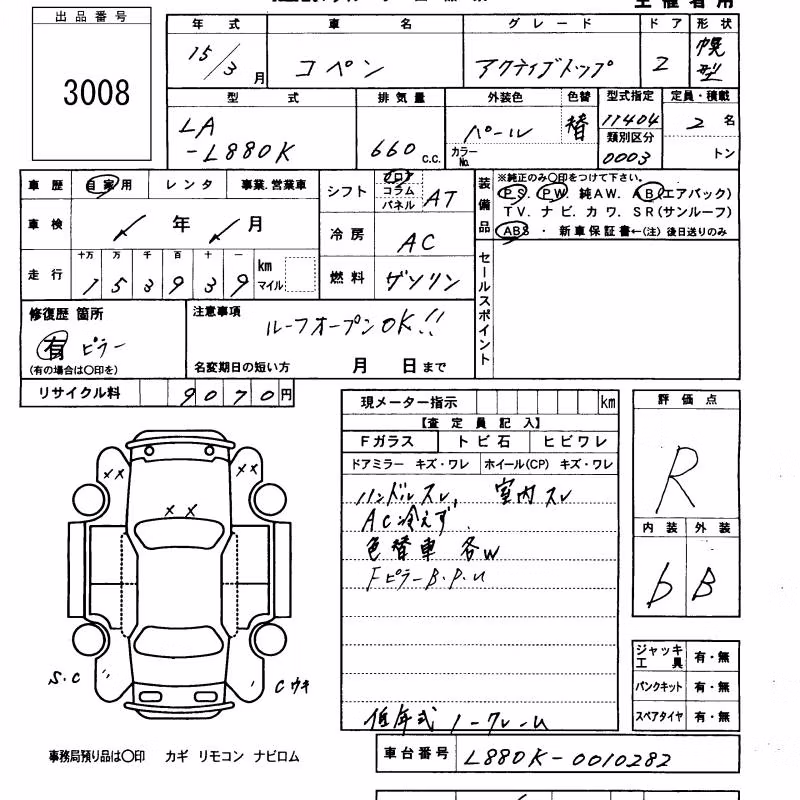 主催者用
出品番号
3008
年式 車名 グレード ドア 形状
15/3月 コペン アクティブトップ 2 幌型
型式 排気量 外装色 色替 型式指定 定員・積載
LA-L880K 660 C.C. パール 替 11404 2名
カラーNo. 類別区分 0003 トン
車歴 自家用 レンタ 事業.営業車
車検 年 月
走行 十万 万 千 百 十 一
153939 km マイル
シフト フロア コラム パネル AT
冷房 AC
燃料 ガソリン
装備品
※純正のみ〇印をつけて下さい。
PS. PW. 純AW. AB(エアバック)
TV. ナビ. カワ. SR(サンルーフ)
ABS ・ 新車保証書←(注) 後日送りのみ
セールスポイント
修復歴 箇所
有 ピラー
(有の場合は〇印を)
注意事項
ルーフオープンOK!!
名変期日の短い方 月 日まで
リサイクル料 9070円
現メーター指示 km
【査定員記入】
Fガラス トビ石 ヒビワレ
ドアミラー キズ・ワレ ホイール(CP) キズ・ワレ
ハンドルスレ, 室内スレ
AC冷えず.
色替車 各W
FピラーB.P.U
低年式 ノークレーム
評価点
R
内装 外装
b B
ジャッキ工具 有・無
パンクキット 有・無
スペアタイヤ 有・無
XX XX
XX
S.C
Cウキ
事務局預り品は〇印 カギ リモコン ナビロム
車台番号 L880K-0010282